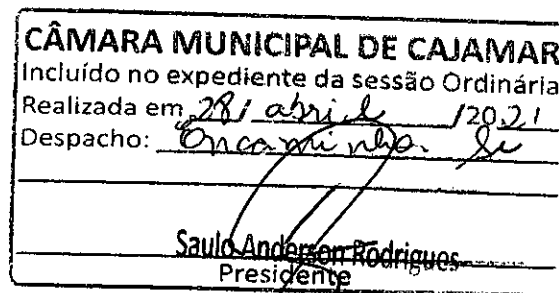 CÂMARA MUNICIPAL DE CAJAMAR
Incluído no expediente da sessão Ordinária
Realizada em 28/ abril /2021
Despacho: "Encaminha. Se
Saulo Anderson Rodrigues
Presidente